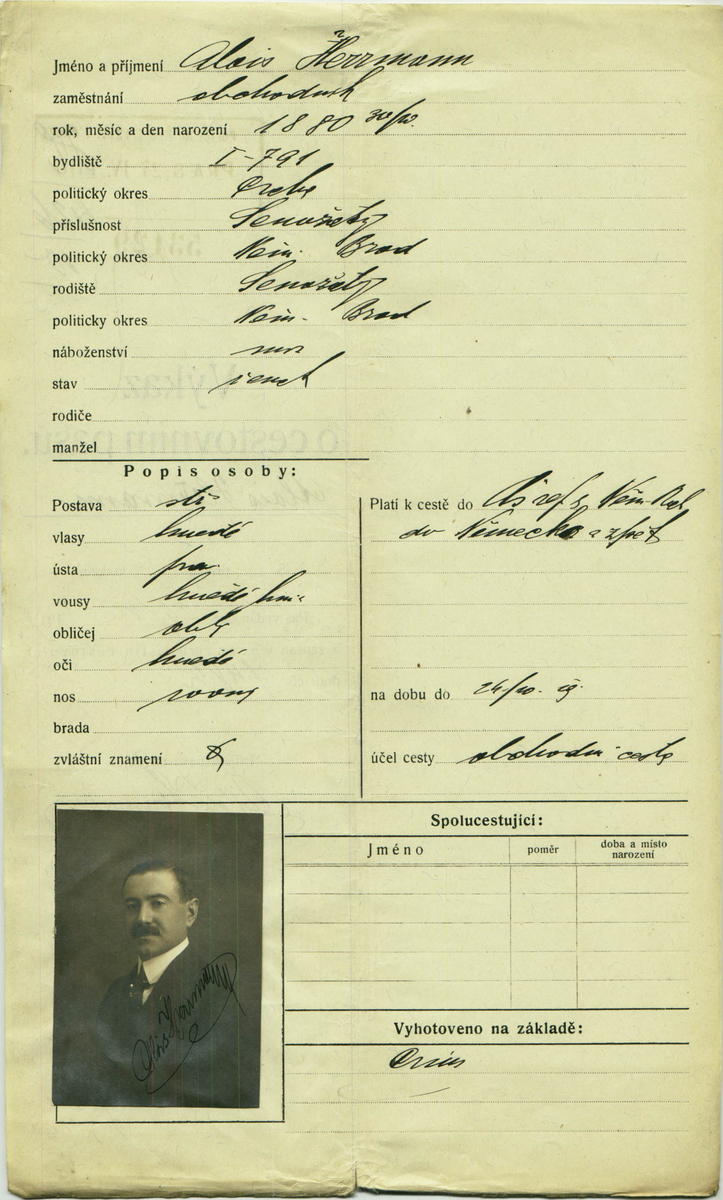 Jméno a příjmení Alois Herrmann
zaměstnání obchodník
rok, měsíc a den narození 1880 30/10.
bydliště I-791
politický okres Praha
příslušnost Senožaty
politický okres Něm. Brod
rodiště Senožaty
politický okres Něm. Brod
náboženství
stav ženat
rodiče
manžel
Popis osoby:
Postava stř
vlasy hnědé
ústa pra.
vousy hnědé
obličej obl
oči hnědé
nos rovný
brada
zvláštní znamení
Platí k cestě do Něm. Rak
do Německa a zpět
na dobu do 24/10.
účel cesty obchodní cesta
Alois Herrmann
Spolucestující:
Jméno
poměr
doba a místo
narození
Vyhotoveno na základě: